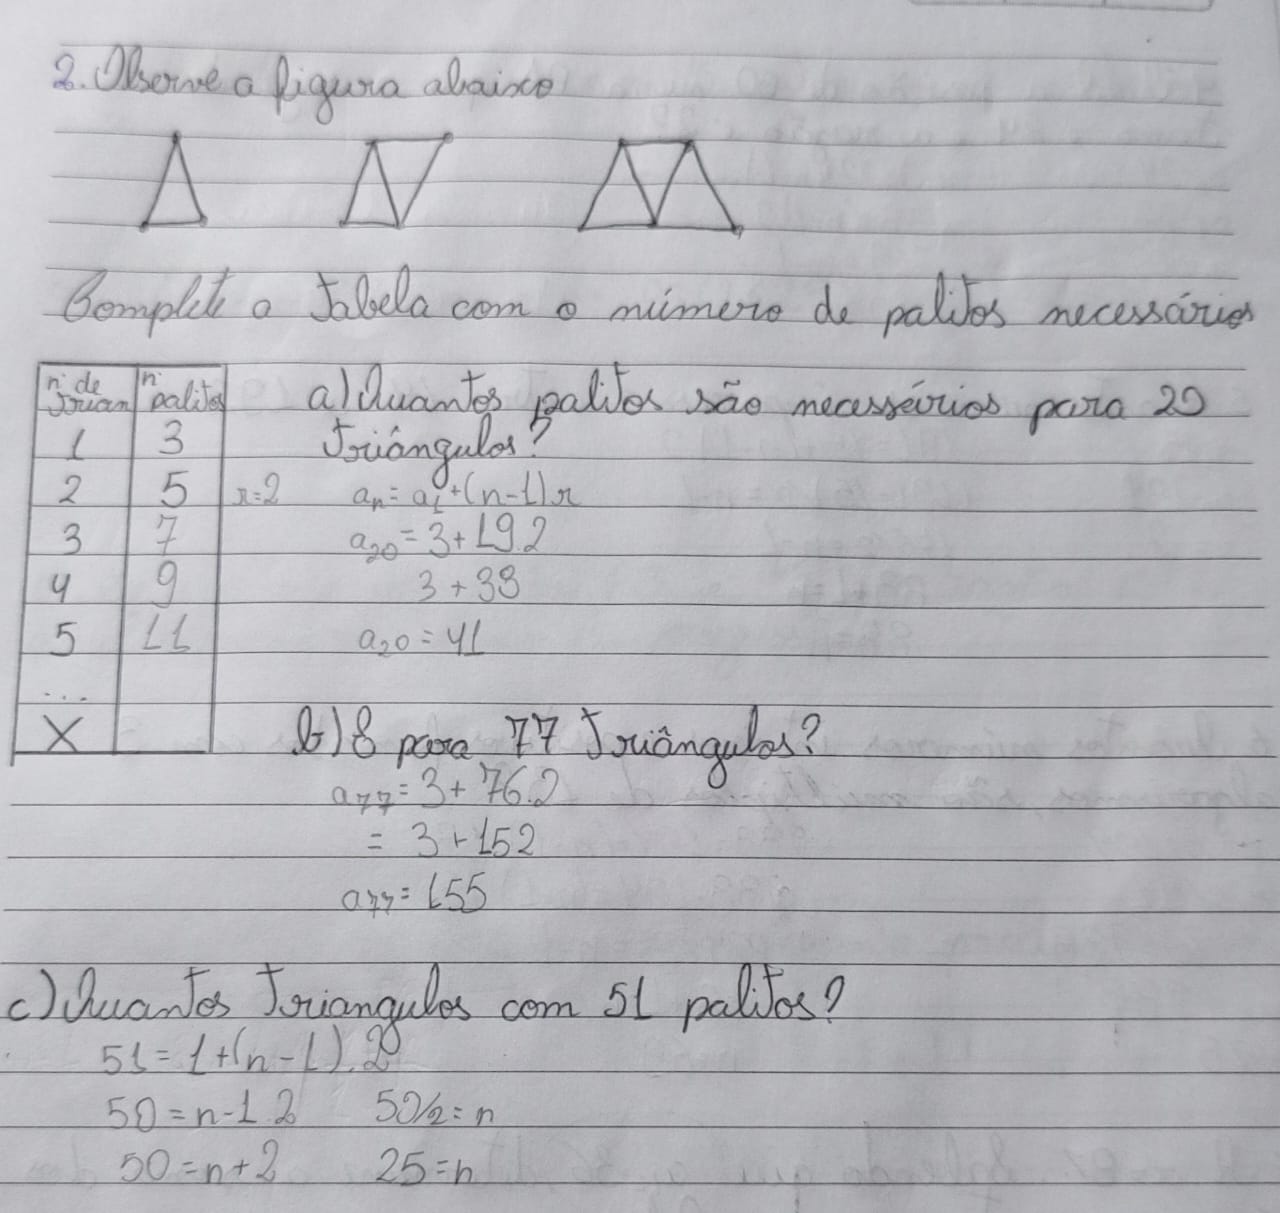 2. Observe a figura abaixo
Complete a tabela com o número de palitos necessários
n° de trian | n palitos
1 | 3
2 | 5 r=2
3 | 7
4 | 9
5 | 11
...
X
a) Quantos palitos são necessários para 20
triângulos?
aₙ = a₁ + (n-1)r
a₂₀ = 3 + 19.2
3 + 38
a₂₀ = 41
b) E para 77 triângulos?
a₇₇ = 3 + 76.2
= 3 + 152
a₇₇ = 155
c) Quantos triangulos com 51 palitos?
51 = 1 + (n-1).2
50 = n-1.2 50/2 = n
50 = n+2 25 = n